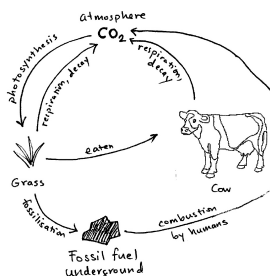 atmosphere
CO2
photosynthesis
respiration, decay
respiration,
decay
eaten
Grass
Cow
fossilisation
combustion
by humans
Fossil fuel
underground